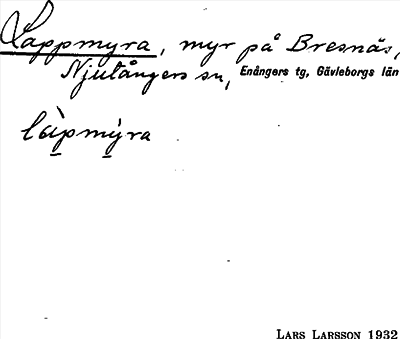 Lappmyra, myr på Bresnäs,
Njutångers sn, Enångers tg, Gävleborgs län
làpmýra
LARS LARSSON 1932